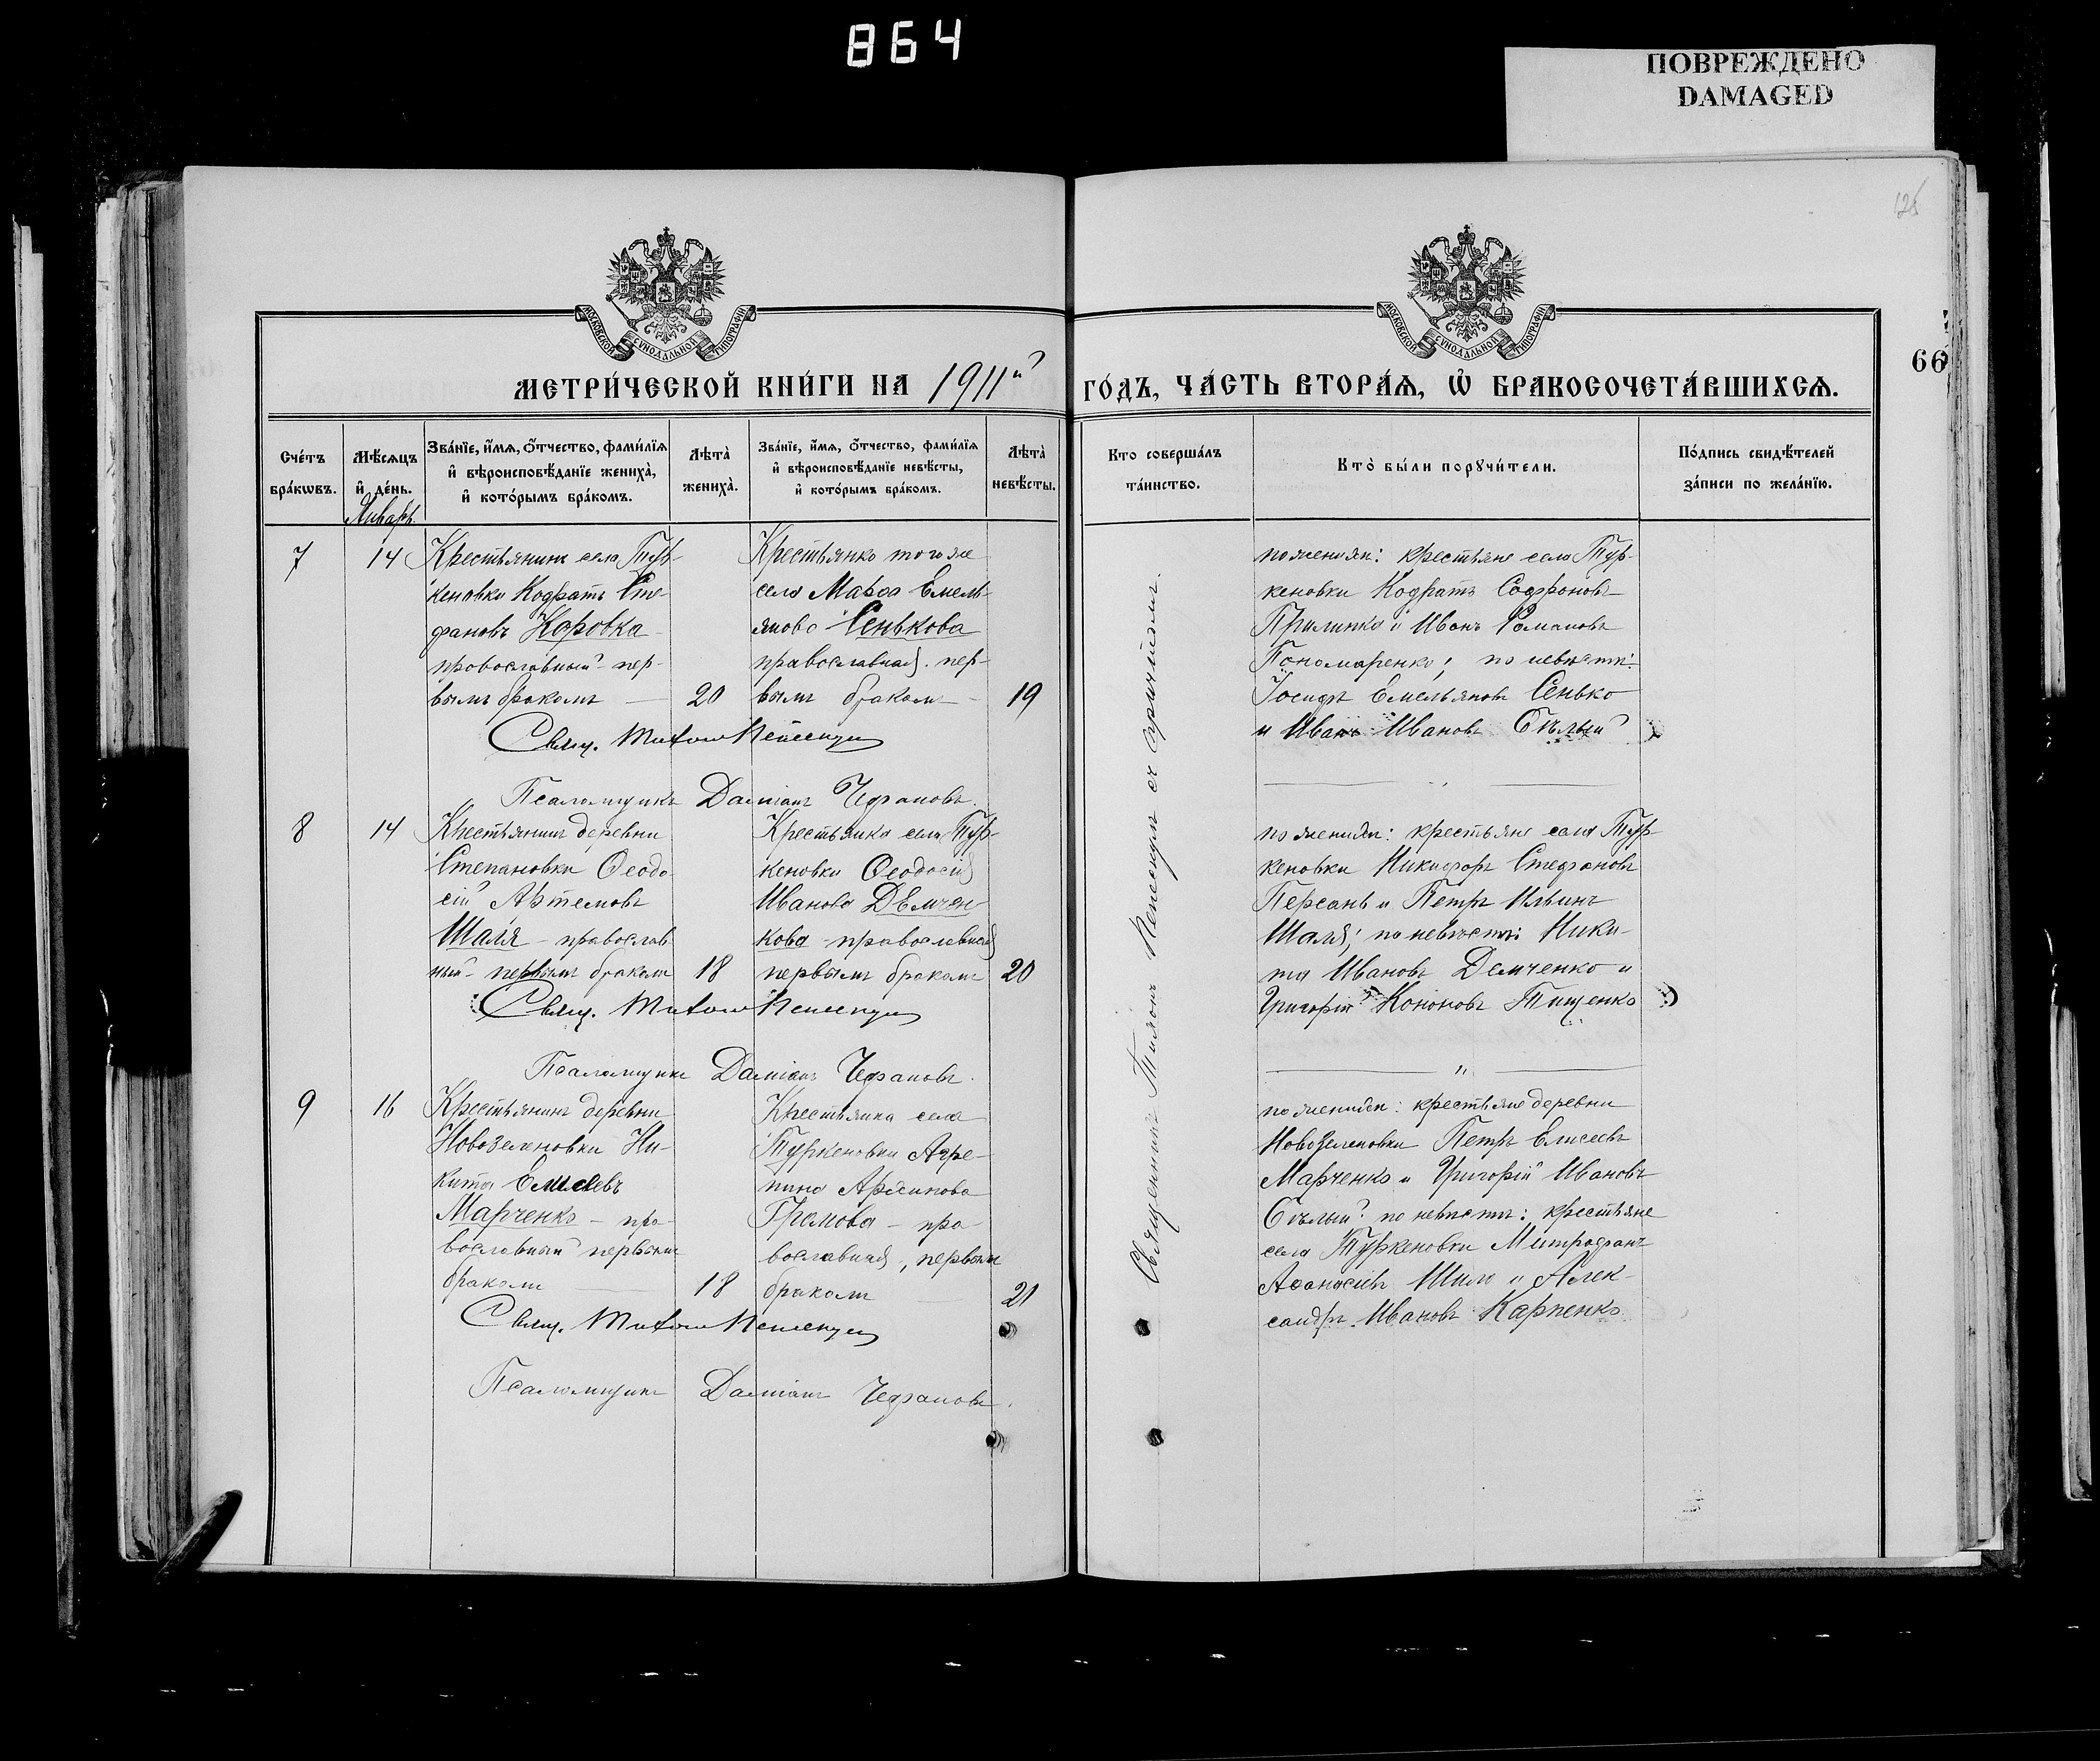 864
ПОВРЕЖДЕНО
DAMAGED
126
66
МОСКОВСКОЙ СУНОДАЛЬНОЙ ТИПОГРАФІИ
МОСКОВСКОЙ СУНОДАЛЬНОЙ ТИПОГРАФІИ
МЕТРИ́ЧЕСКОЙ КНИ́ГИ НА 1911й ГО́ДЪ, ЧА́СТЬ ВТОРА́Ѧ, Ѡ҆ БРАКОСОЧЕТА́ВШИХСѦ.
Сче́тъ бра́кѡвъ.
Мѣ́сѧцъ и҆ де́нь.
Зва́нїе, и҆́мѧ, ѻ҆́тчество, фами́лїѧ и҆ вѣроисповѣ́данїе жениха̀, и҆ кото́рымъ бра́комъ.
Лѣта̀ жениха̀.
Зва́нїе, и҆́мѧ, ѻ҆́тчество, фами́лїѧ и҆ вѣроисповѣ́данїе невѣ́сты, и҆ кото́рымъ бра́комъ.
Лѣта̀ невѣ́сты.
Кто соверша́лъ та́инство.
Кто̀ бы́ли порꙋчи́тели.
По́дпись свидѣ́телей за́писи по жела́нїю.
Январь.
7
14
Крестьянинъ села Тур-
кеновки Кодратъ Сте-
фановъ Коровка
православный пер-
вымъ бракомъ —
20
Крестьянка того же
села Марѳа Емель-
янова Сенькова
православная. пер-
вымъ бракомъ —
19
по женихѣ: крестьяне села Тур-
кеновки Кодратъ Софроновъ
Прилипко и Иванъ Романовъ
Пономаренко; по невѣстѣ:
Іосифъ Емельяновъ Сенько
и Иванъ Ивановъ Бѣлый
Свящ. Тихонъ
Псаломщикъ Даміанъ Чефрановъ.
8
14
Крестьянинъ деревни
Степановки Ѳеодо-
сій Артемовъ
Шаля - православ-
ный - первымъ бракомъ
18
Крестьянка села Тур-
кеновки Ѳеодосія
Иванова Демчен-
кова - православная
первымъ бракомъ
20
по женихѣ: крестьяне села Тур-
кеновки Никифоръ Стефановъ
Персань и Петръ Ильинъ
Шаля; по невѣстѣ: Ники-
та Ивановъ Демченко и
Григорій Кононовъ Тищенко
Свящ. Тихонъ
Псаломщикъ Даміанъ Чефрановъ.
9
16
Крестьянинъ деревни
Новозеленовки Ни-
кита Елисеевъ
Марченко - пра-
вославный первымъ
бракомъ —
18
Крестьянка села
Туркеновки Агре-
пина
Громова - пра-
вославная, первымъ
бракомъ
21
по женихѣ: крестьяне деревни
Новозеленовки Петръ Елисеевъ
Марченко и Григорій Ивановъ
Бѣлый: по невѣстѣ: крестьяне
села Туркеновки Митрофанъ
Аѳанасіевъ Шило и Алек-
сандръ Ивановъ Карпенко.
Свящ. Тихонъ
Псаломщикъ Даміанъ Чефрановъ.
Священникъ Тихонъ съ причтомъ.